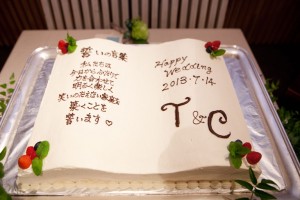 誓いの言葉
私たちは
力を合わせて
明るく楽しく
笑いのたえない家庭を
築くことを
誓います♡
Happy
Wedding
2013.7.14
T & C